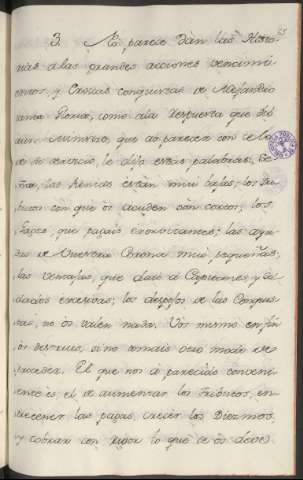 3. No parece dàn las Histo-
rias a las grandes acciones vencimi-
entos, y
Conquistas de Alejandro
como una respuesta que dió
que al parecer con celo
de su servicio, le dijo estas palabras: Se-
ñor, las Rentas están mui bajas; los tri-
butos con que os acuden són cortos; los
gages, que pagais exorvitantes; las ayu-
das de Vuestra Corona mui pequeñas;
las ventajas, que dais à Capitanes, y Sol-
dados excesivas; los despojos de las Conquis-
tas, no òs valen nada. Vos mismo en fin
òs destruis, si no tomais otro modo de
proceder. El que nos à parecido conveni-
ente es, el de aumentar los tributos, en-
las pagas, crecer los Diezmos,
y cobrar con rigor lo que se òs deve